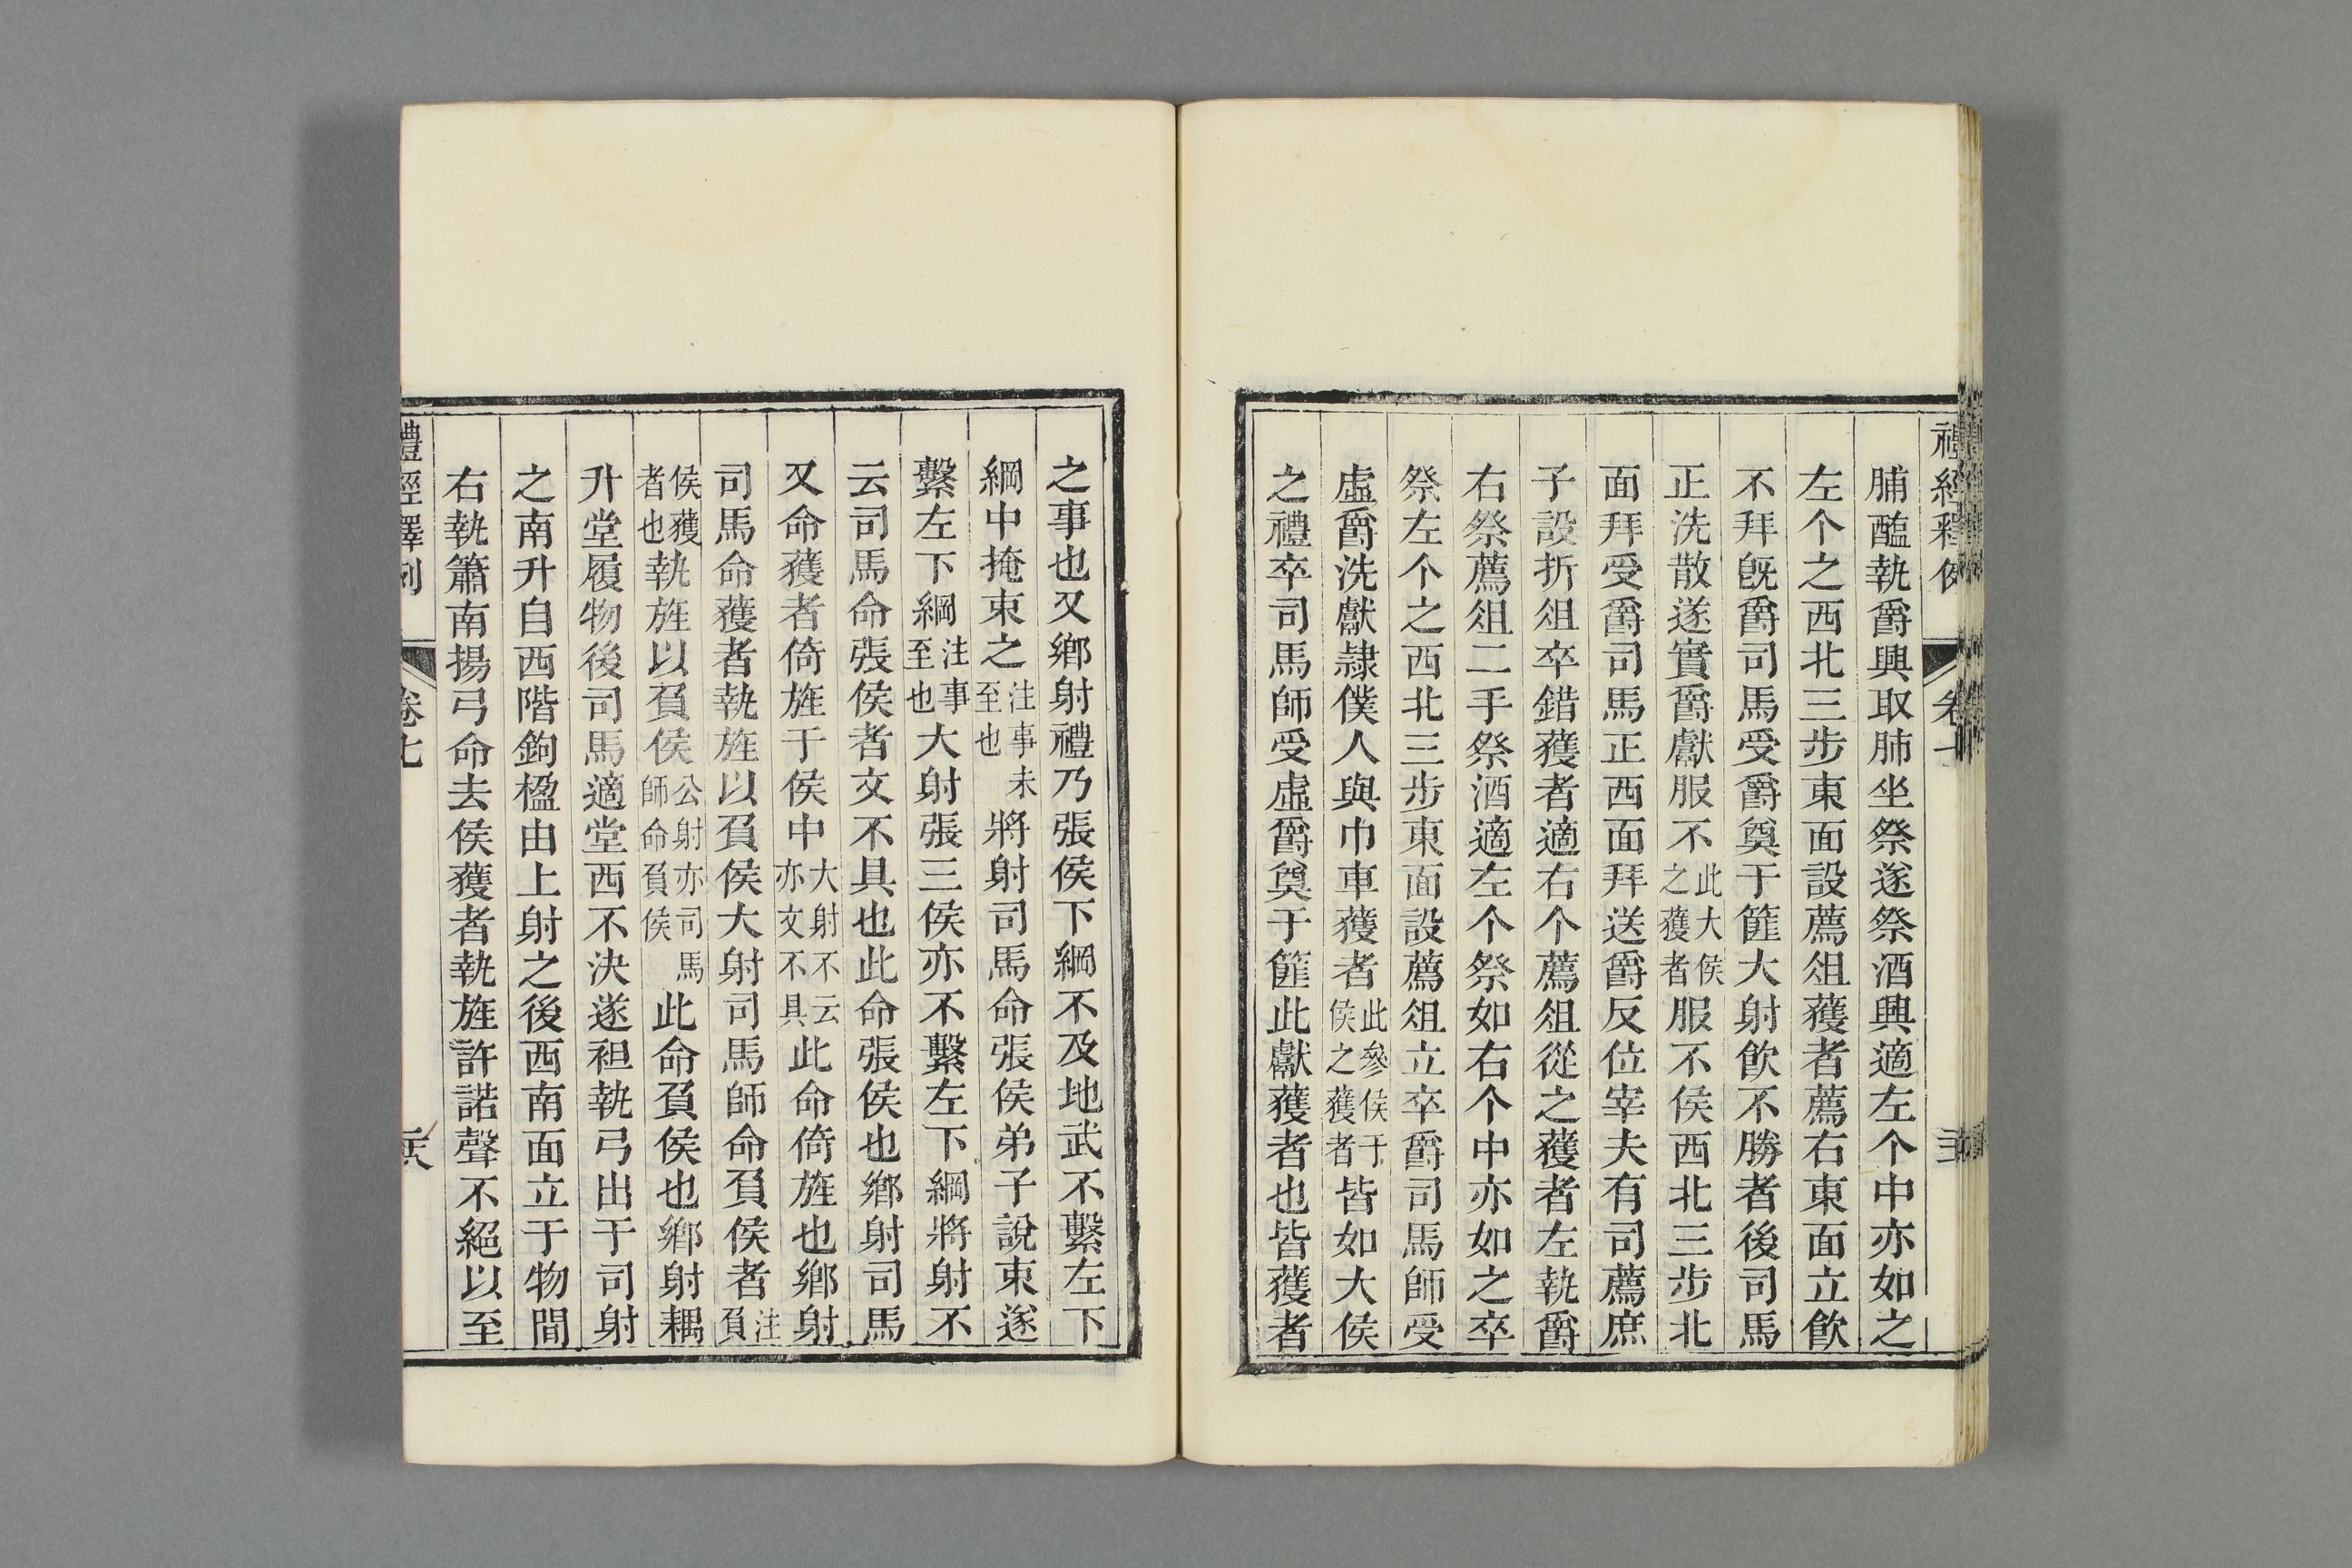 脯醢執爵興取肺坐祭遂祭酒興適左个中亦如之
左个之西北三步東面設薦俎獲者薦右東面立飮
不拜旣爵司馬受爵奠于篚大射飮不勝者後司馬
正洗散遂實爵獻服不此大侯之獲者服不侯西北三步北
面拜受爵司馬正西面拜送爵反位宰夫有司薦庶
子設折俎卒錯獲者適右个薦俎從之獲者左執爵
右祭薦俎二手祭酒適左个祭如右个中亦如之卒
祭左个之西北三步東面設薦俎立卒爵司馬師受
虛爵洗獻隷僕人與巾車獲者此參侯干侯之獲者皆如大侯
之禮卒司馬師受虛爵奠于篚此獻獲者也皆獲者
之事也又鄉射禮乃張侯下綱不及地武不繫左下
綱中掩束之注事未至也將射司馬命張侯弟子說束遂
繫左下綱注事至也大射張三侯亦不繫左下綱將射不
云司馬命張侯者文不具也此命張侯也鄉射司馬
又命獲者倚旌于侯中大射不云亦文不具此命倚旌也鄉射
司馬命獲者執旌以負侯大射司馬師命負侯者注負
侯獲者也執旌以負侯公射亦司馬師命負侯此命負侯也鄉射耦
升堂履物後司馬適堂西不決遂袒執弓出于司射
之南升自西階鉤楹由上射之後西南面立于物間
右執簫南揚弓命去侯獲者執旌許諾聲不絕以至
禮經釋例
卷七